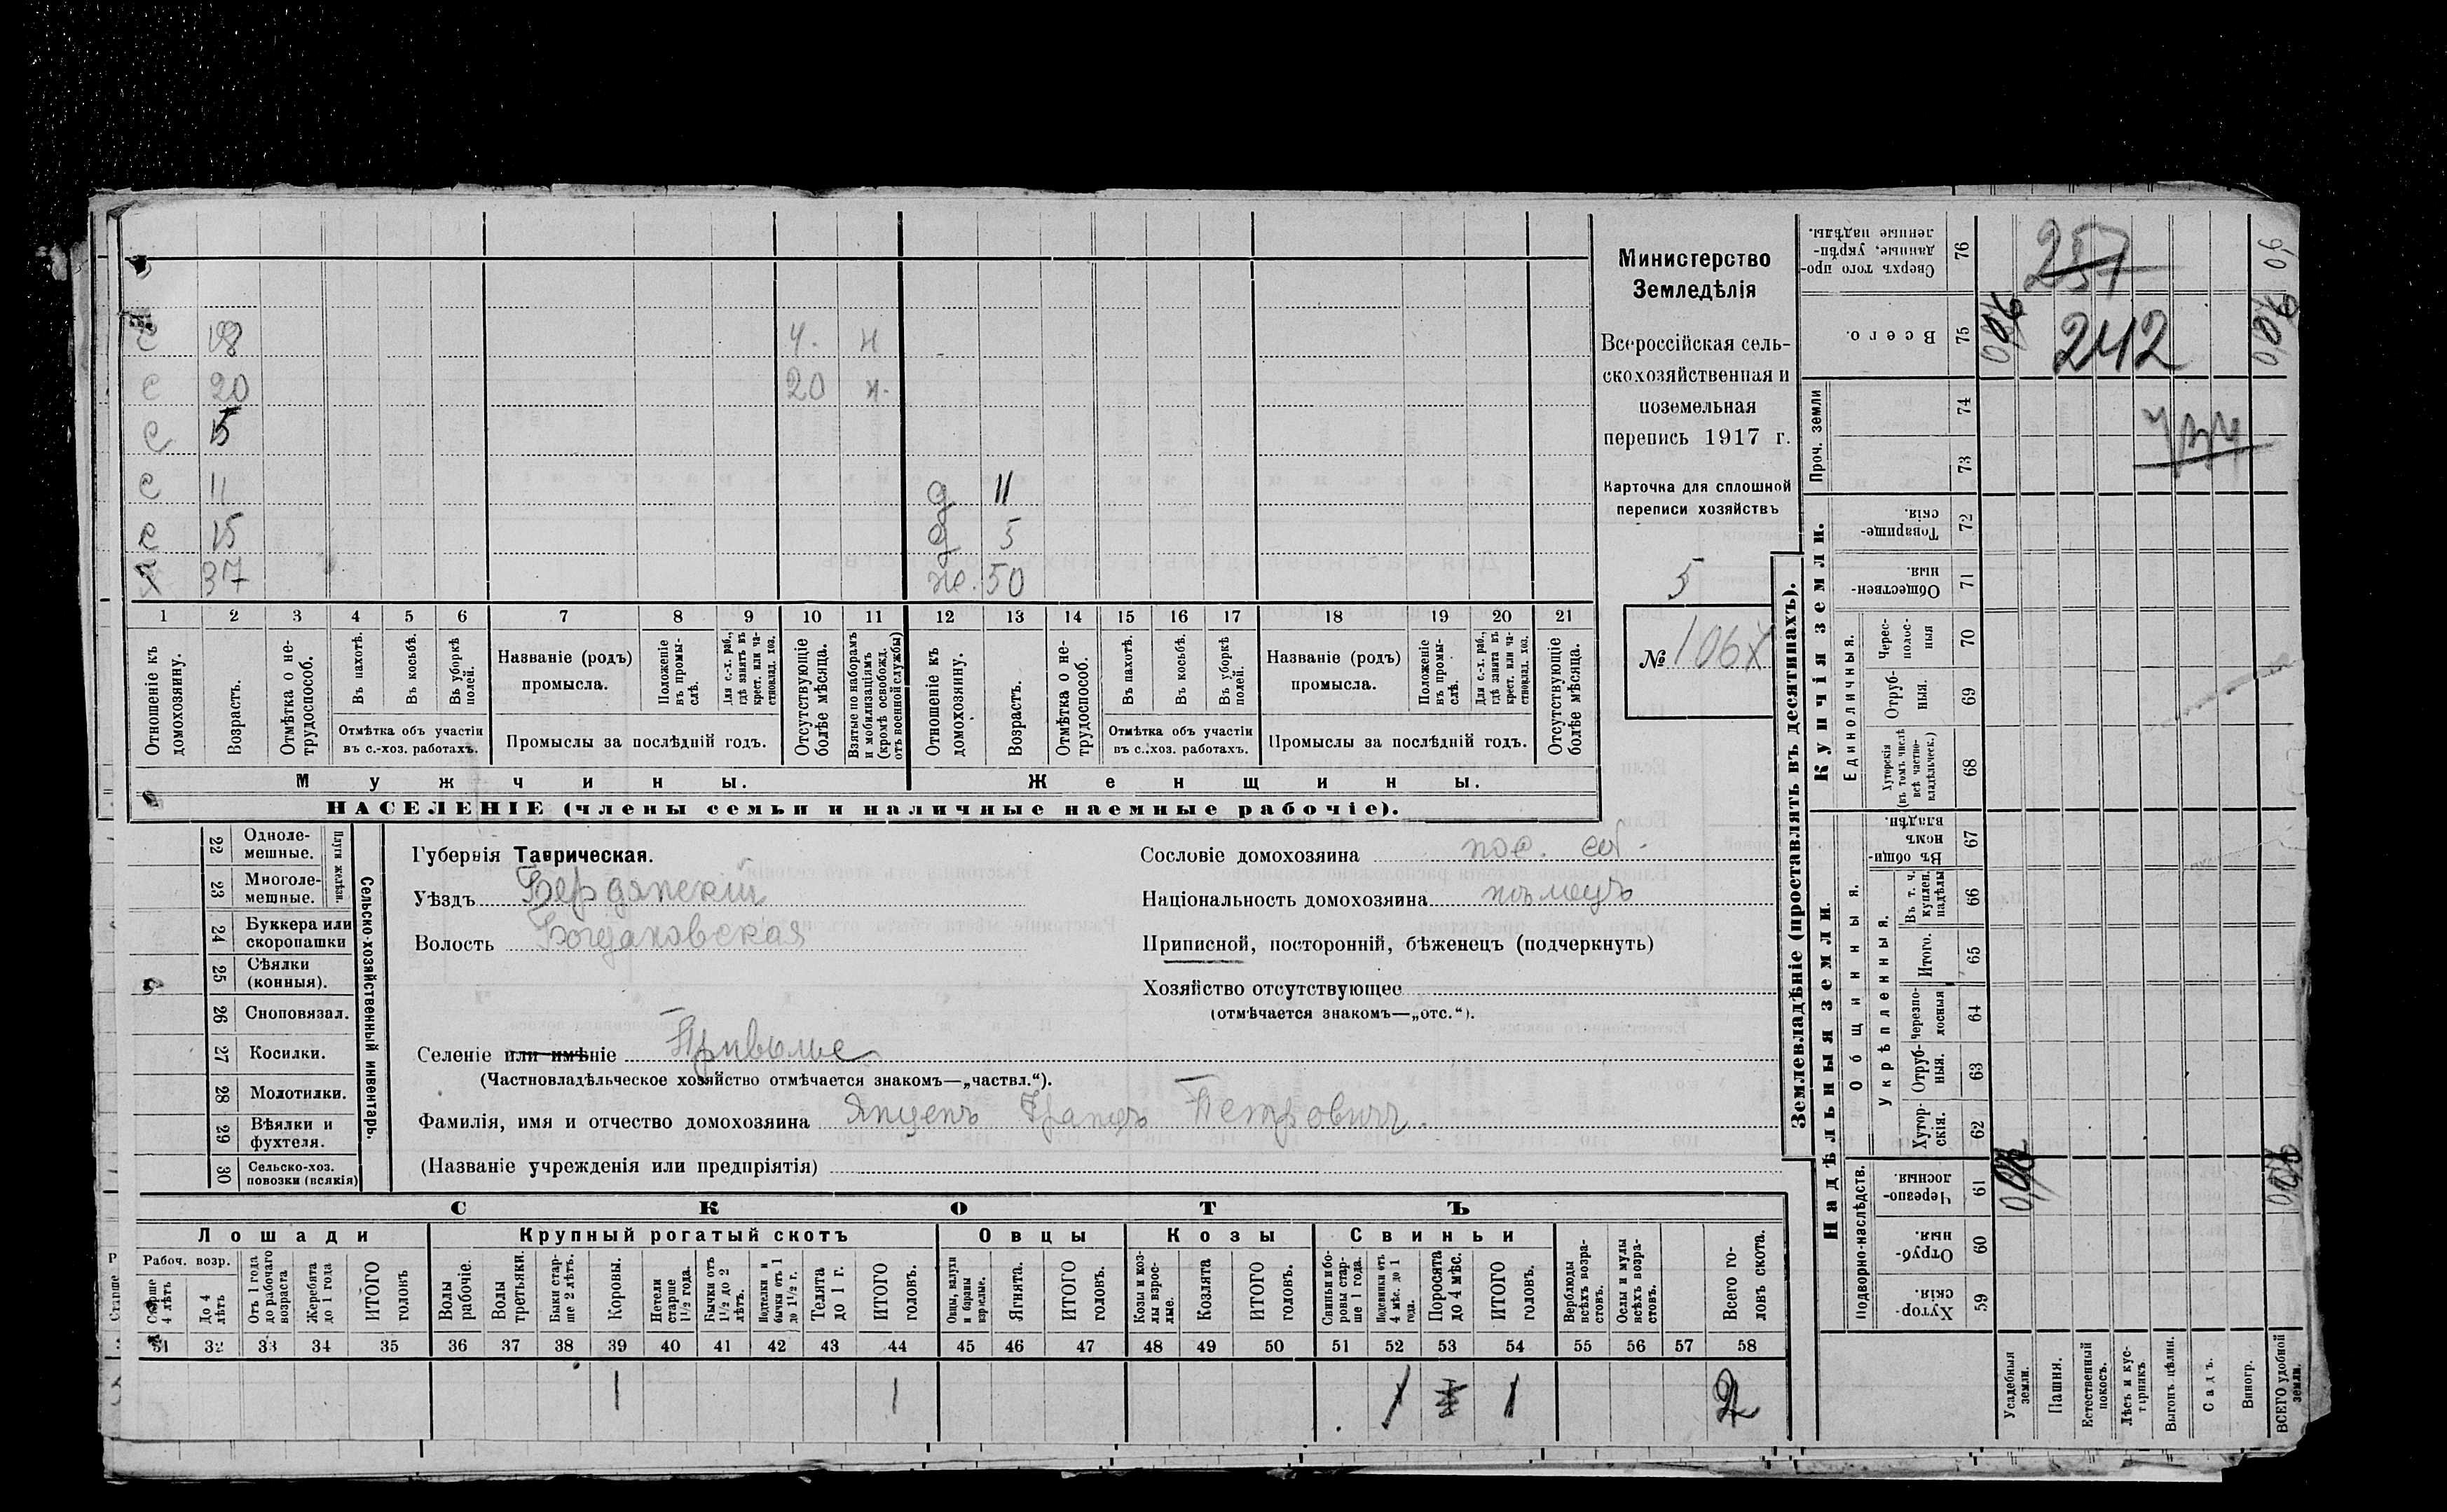 с 18 4. н
с 20 20 н.
с 15
с 11 д 11
с 15 д 5
х 37 же. 50
1 2 3 4 5 6 7 8 9 10 11 12 13 14 15 16 17 18 19 20 21
Отношеніе къ домохозяину.
Возрастъ.
Отмѣтка о не-трудоспособ.
Въ пахотѣ.
Въ косьбѣ.
Въ уборкѣ полей.
Отмѣтка объ участіи въ с.-хоз. работахъ.
Названіе (родъ) промысла.
Положеніе въ промы-слѣ.
Для с.-х. раб., гдѣ занятъ въ крест. или ча-стновлад. хоз.
Промыслы за послѣдній годъ.
Отсутствующіе болѣе мѣсяца.
Взятые по наборамъ и мобилизаціямъ (кромѣ освобожд. отъ военной службы)
Отношеніе къ домохозяину.
Возрастъ.
Отмѣтка о не-трудоспособ.
Въ пахотѣ.
Въ косьбѣ.
Въ уборкѣ полей.
Отмѣтка объ участіи въ с.-хоз. работахъ.
Названіе (родъ) промысла.
Положеніе въ промы-слѣ.
Для с.-х. раб., гдѣ занята въ крест. или ча-стновлад. хоз.
Промыслы за послѣдній годъ.
Отсутствующіе болѣе мѣсяца.
Мужчины. Женщины.
НАСЕЛЕНІЕ (члены семьи и наличные наемные рабочіе).
Министерство
Земледѣлія
Всероссійская сель-
скохозяйственная и
поземельная
перепись 1917 г.
Карточка для сплошной
переписи хозяйствъ
5
№ 106
22 Одноле-мешные.
23 Многоле-мешные.
Плуги желѣзн.
24 Буккера или скоропашки
25 Сѣялки (конныя).
26 Сноповязал.
27 Косилки.
28 Молотилки.
29 Вѣялки и фухтеля.
30 Сельско-хоз. повозки (всякія)
Сельско-хозяйственный инвентарь.
Губернія Таврическая.
Уѣздъ Бердянскій
Волость Богдановская
Селеніе или имѣніе Привольне
(Частновладѣльческое хозяйство отмѣчается знакомъ—„частвл.“).
Фамилія, имя и отчество домохозяина Янценъ Францъ Петровичъ.
(Названіе учрежденія или предпріятія)
Сословіе домохозяина пос. соб.
Національность домохозяина нѣмецъ
Приписной, посторонній, бѣженецъ (подчеркнуть)
Хозяйство отсутствующее
(отмѣчается знакомъ—„отс.“).
СКОТЪ
Лошади Крупный рогатый скотъ Овцы Козы Свиньи
Рабоч. возр.
Старше 4 лѣтъ
До 4 лѣтъ
Отъ 1 года до рабочаго возраста
Жеребята до 1 года
ИТОГО головъ
Волы рабочіе.
Волы третьяки.
Быки стар-ше 2 лѣтъ.
Коровы.
Нетели старше 1 1/2 года.
Бычки отъ 1 1/2 до 2 лѣтъ.
Подтелки и бычки отъ 1 до 1 1/2 г.
Телята до 1 г.
ИТОГО головъ.
Овцы, валухи и бараны взрослые.
Ягнята.
ИТОГО головъ.
Козы и коз-лы взрос-лые.
Козлята
ИТОГО головъ.
Свиньи и бо-ровы стар-ше 1 года.
Подсвинки отъ 4 мѣс. до 1 года.
Поросята до 4 мѣс.
ИТОГО головъ.
Верблюды всѣхъ возра-стовъ.
Ослы и мулы всѣхъ возра-стовъ.
Всего го-ловъ скота.
31 32 33 34 35 36 37 38 39 40 41 42 43 44 45 46 47 48 49 50 51 52 53 54 55 56 57 58
1 1 1 1 2
Землевладѣніе (проставлять въ десятинахъ).
Сверхъ того про-данные, укрѣп-ленные надѣлы. 76
257
Всего. 75
242
Проч. земли 74 73
Купчія земли.
Товарище-скія. 72
Обществен-ныя. 71
Единоличныя.
Черес-полос-ныя 70
Отруб-ныя. 69
Хуторскія (въ томъ числѣ всѣ частно-владѣльческ.) 68
Надѣльныя земли.
Общинныя.
Въ общи-номъ владѣн. 67
Укрѣпленныя.
Въ т. ч. куплен. надѣлы 66
Итого. 65
Черезпо-лосная 64
Отруб-ныя. 63
Хутор-скія. 62
Подворно-наслѣдств.
Черезпо-лосныя 61
Отруб-ныя 60
Хутор-скія. 59
Усадебныя земли.
Пашня.
Естественный покосъ.
Лѣсъ и кус-тарникъ
Выгонъ цѣлин.
Садъ.
Виногр.
ВСЕГО удобной земли.